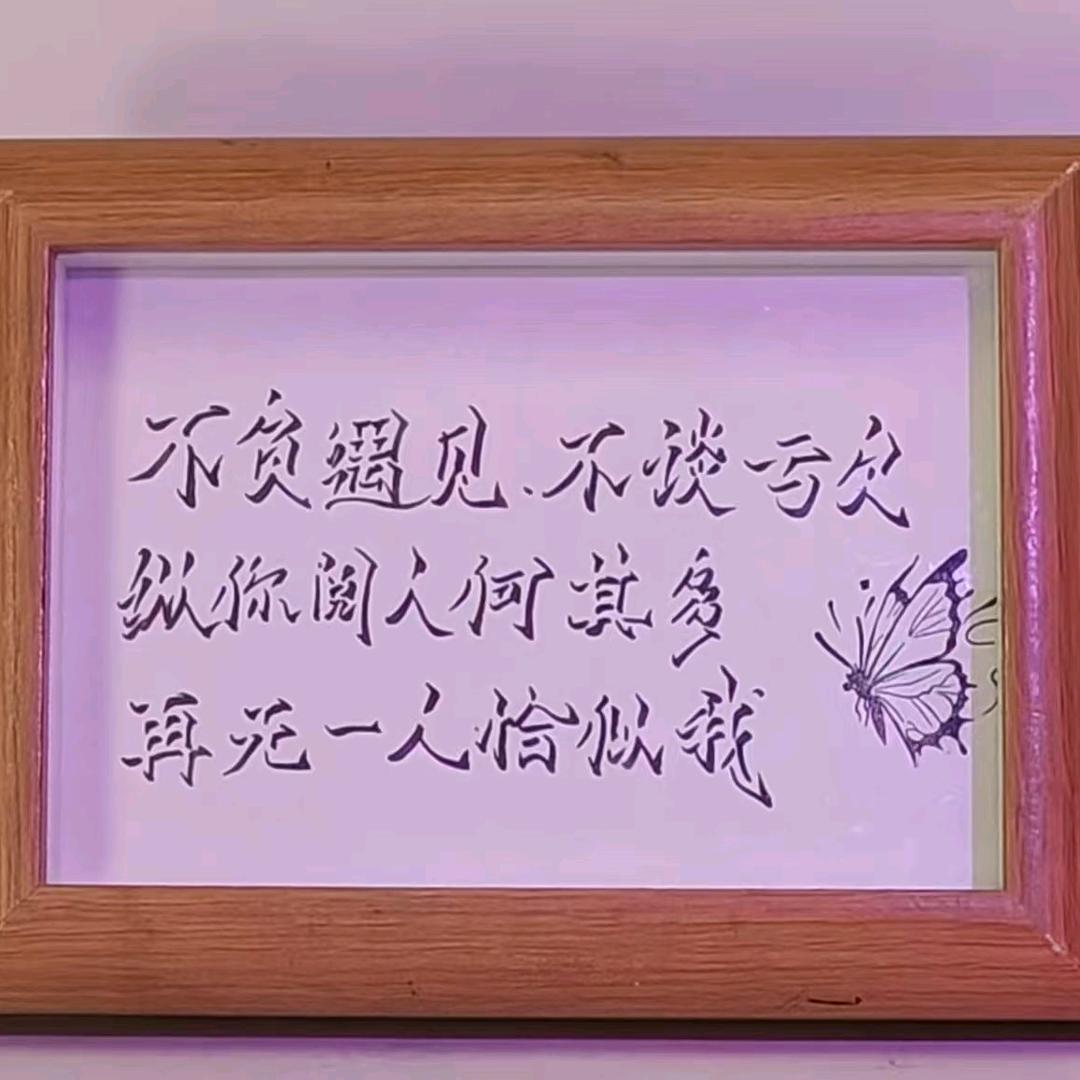 不负遇见.不谈亏欠
纵你阅人何其多
再无一人恰似我